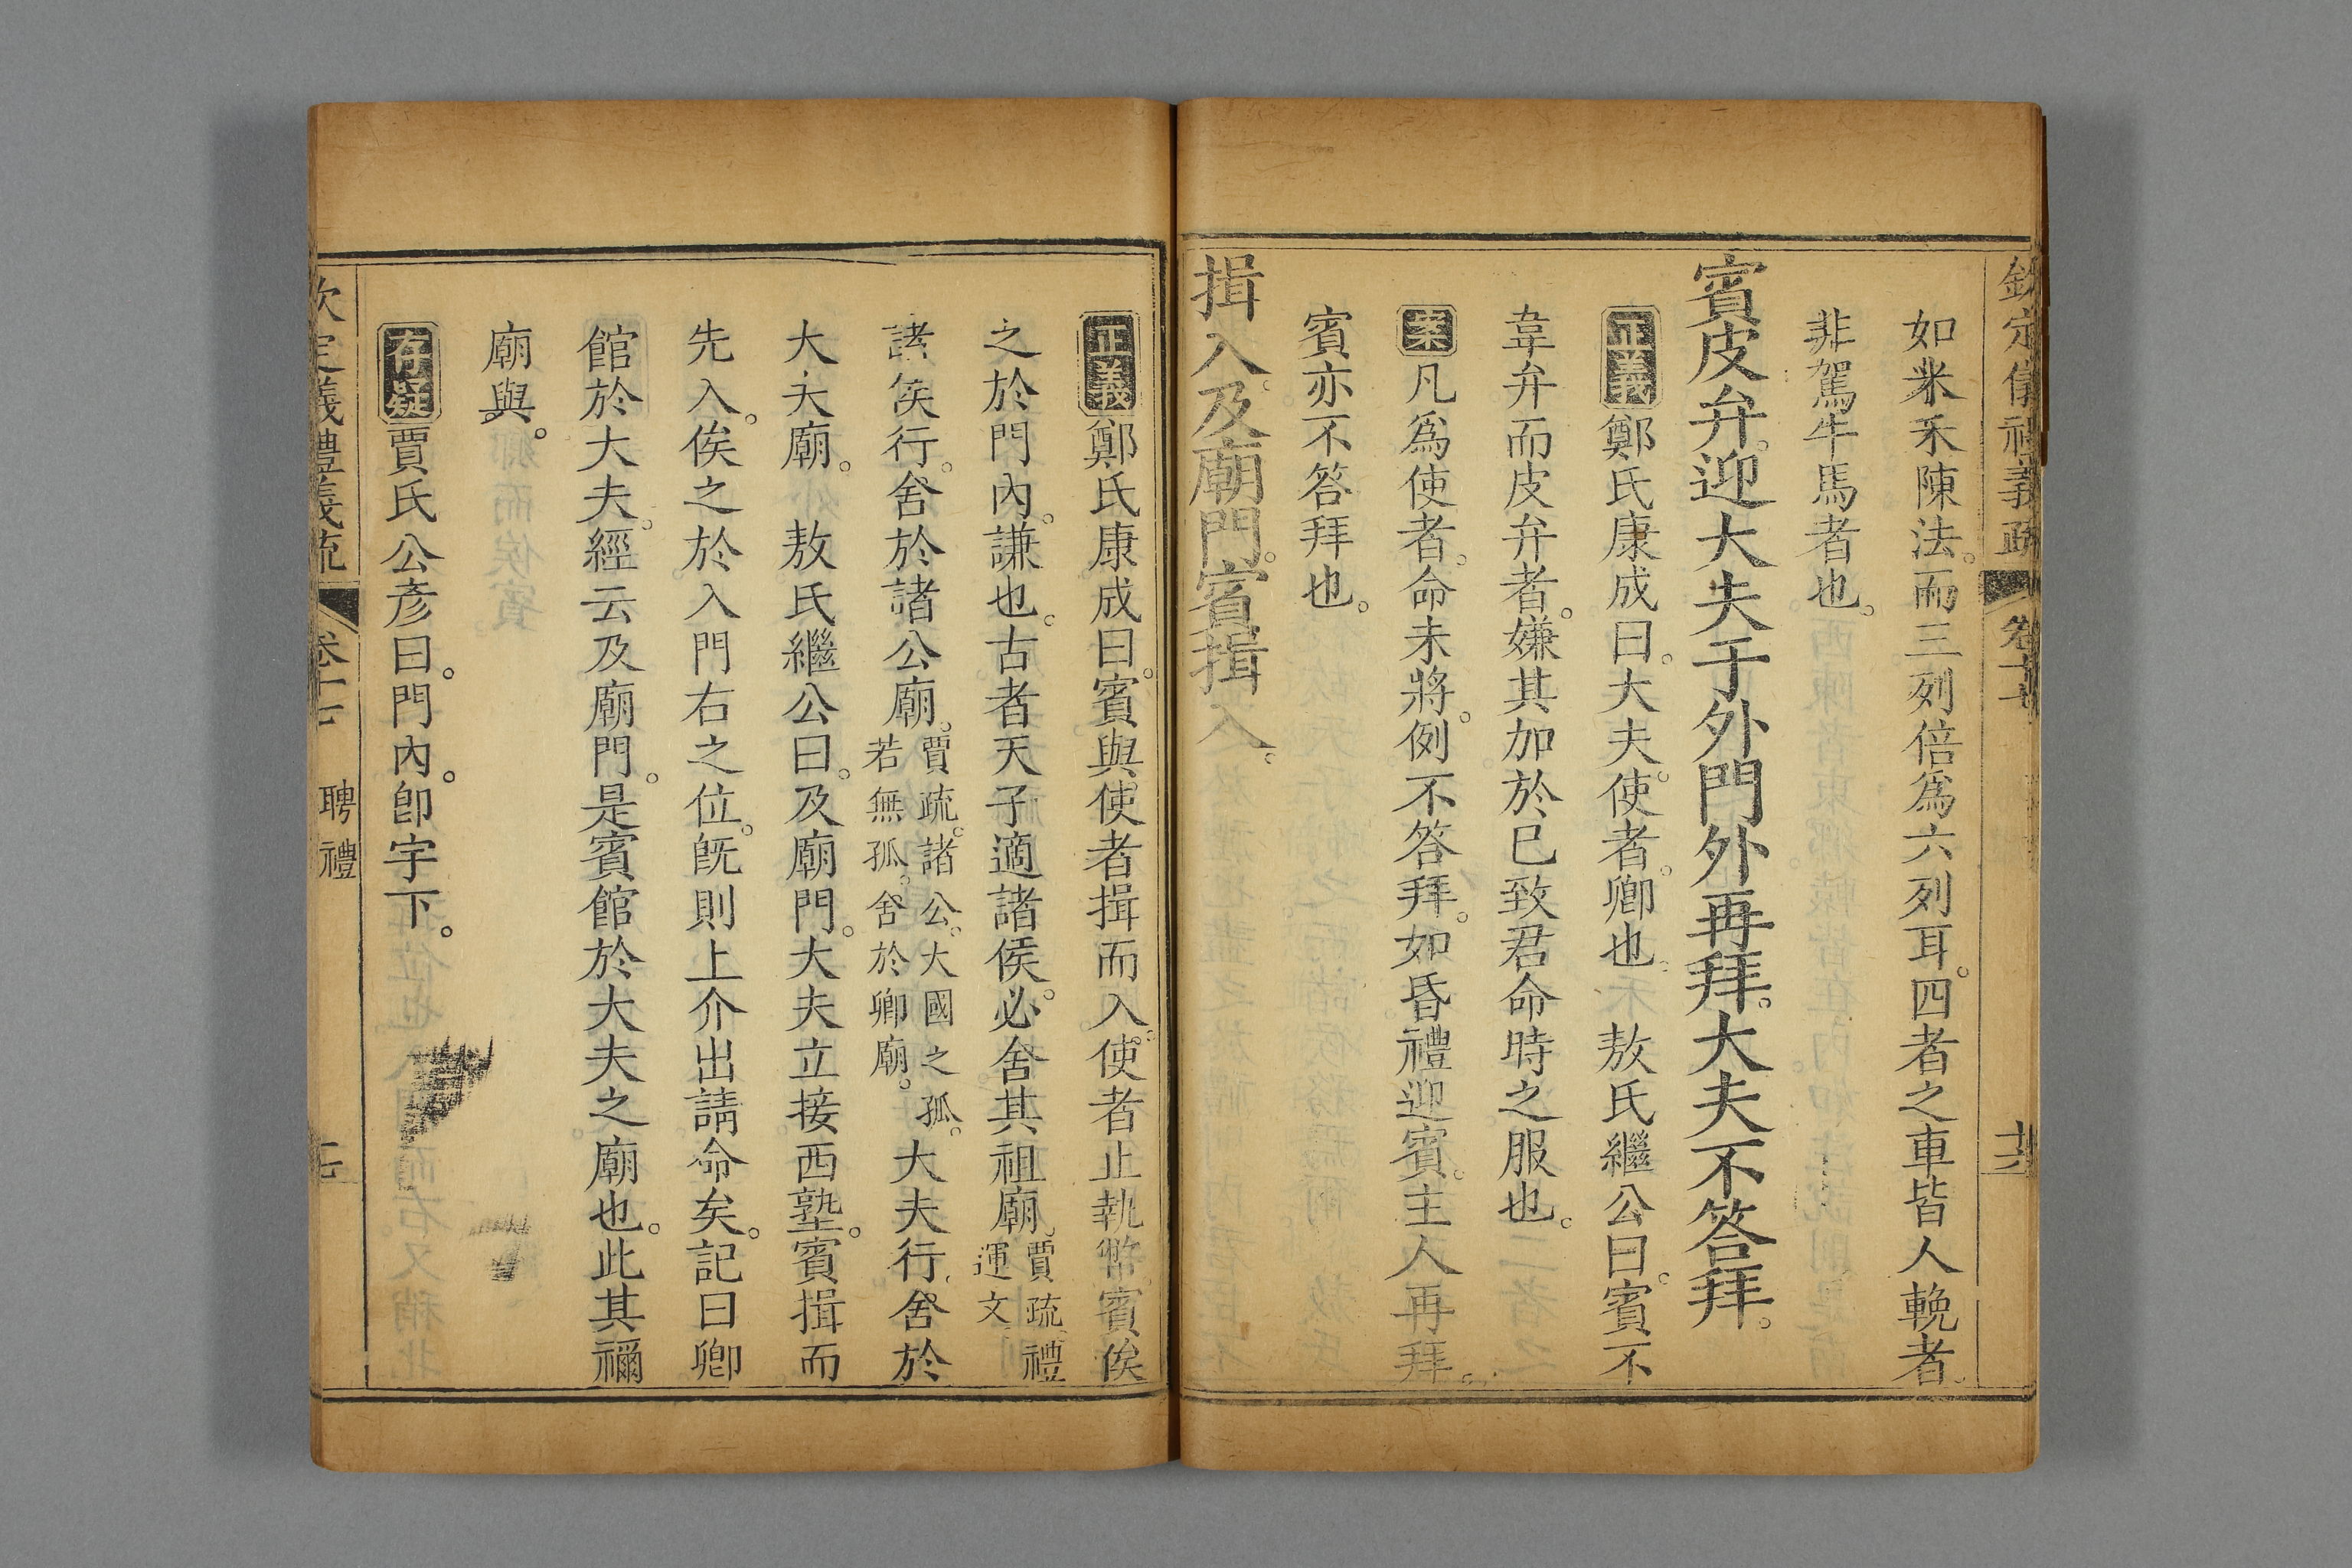 欽定儀禮義疏 卷十七 六
如米禾陳法。而三列倍爲六列耳。四者之車皆人輓者。
非駕牛馬者也。
賓皮弁。迎大夫于外門外再拜。大夫不答拜。
正義鄭氏康成曰。大夫。使者。卿也。 敖氏繼公曰。賓不
韋弁而皮弁者。嫌其加於已致君命時之服也。
案凡爲使者。命未將。例不答拜。如昏禮迎賓。主人再拜。
賓亦不答拜也。
揖入。及廟門。賓揖入。
正義鄭氏康成曰。賓與使者揖而入。使者止執幣。賓俟
之於門內。謙也。古者天子適諸侯。必舍其祖廟。賈疏。禮運文
諸侯行。舍於諸公廟。賈疏。諸公。大國之孤。若無孤。舍於卿廟。大夫行。舍於
大夫廟。 敖氏繼公曰。及廟門。大夫立接西塾。賓揖而
先入。俟之於入門右之位。旣則上介出請命矣。記曰卿
館於大夫。經云及廟門。是賓館於大夫之廟也。此其禰
廟與。
存疑賈氏公彥曰。門內。卽宇下。
欽定儀禮義疏 卷十七 聘禮 七